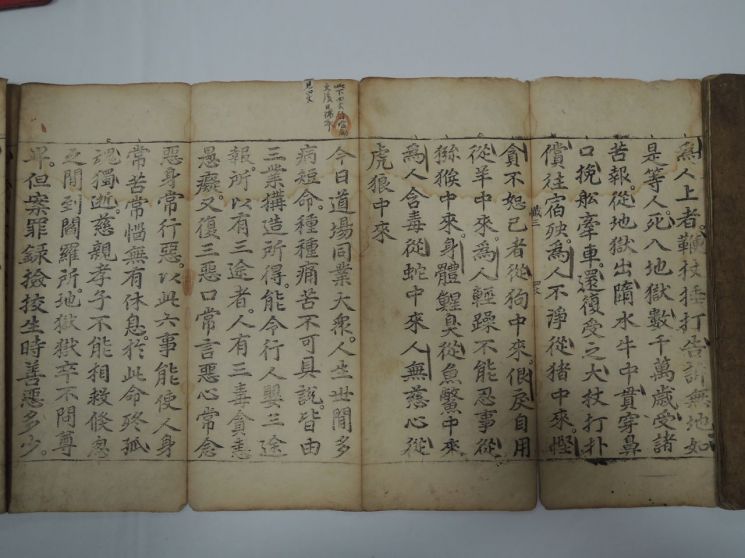 為人上者。鞭杖捶打。告訴無地。如
是等人。死入地獄。數千萬歲。受諸
苦報。從地獄出。墮水牛中。貫穿鼻
口。挽舩牽車。還復受之。大杖打扑。
償往宿殃。為人不淨。從猪中來。慳
懺三
貪不恕己者。從狗中來。佷戾自用
從羊中來。為人輕躁不能忍事。從
猕猴中來。身體鯹臭。從魚鱉中來。
為人含毒。從蛇中來。人無慈心。從
虎狼中來
今日道場同業大衆。人生世間多
病短命。種種痛苦不可具說。皆由
三業搆造所得。能令行人嬰三途
報。所以有三途者。人有三毒貪恚
愚癡。又復三惡口常言惡心常念
惡身常行惡。以此六事能使人身
常苦常惱無有休息。於此命終孤
魂獨逝。慈親孝子不能相救。倏忽
之間到閻羅所。地獄獄卒不問尊
卑。但案罪録撿挍生時善惡多少。